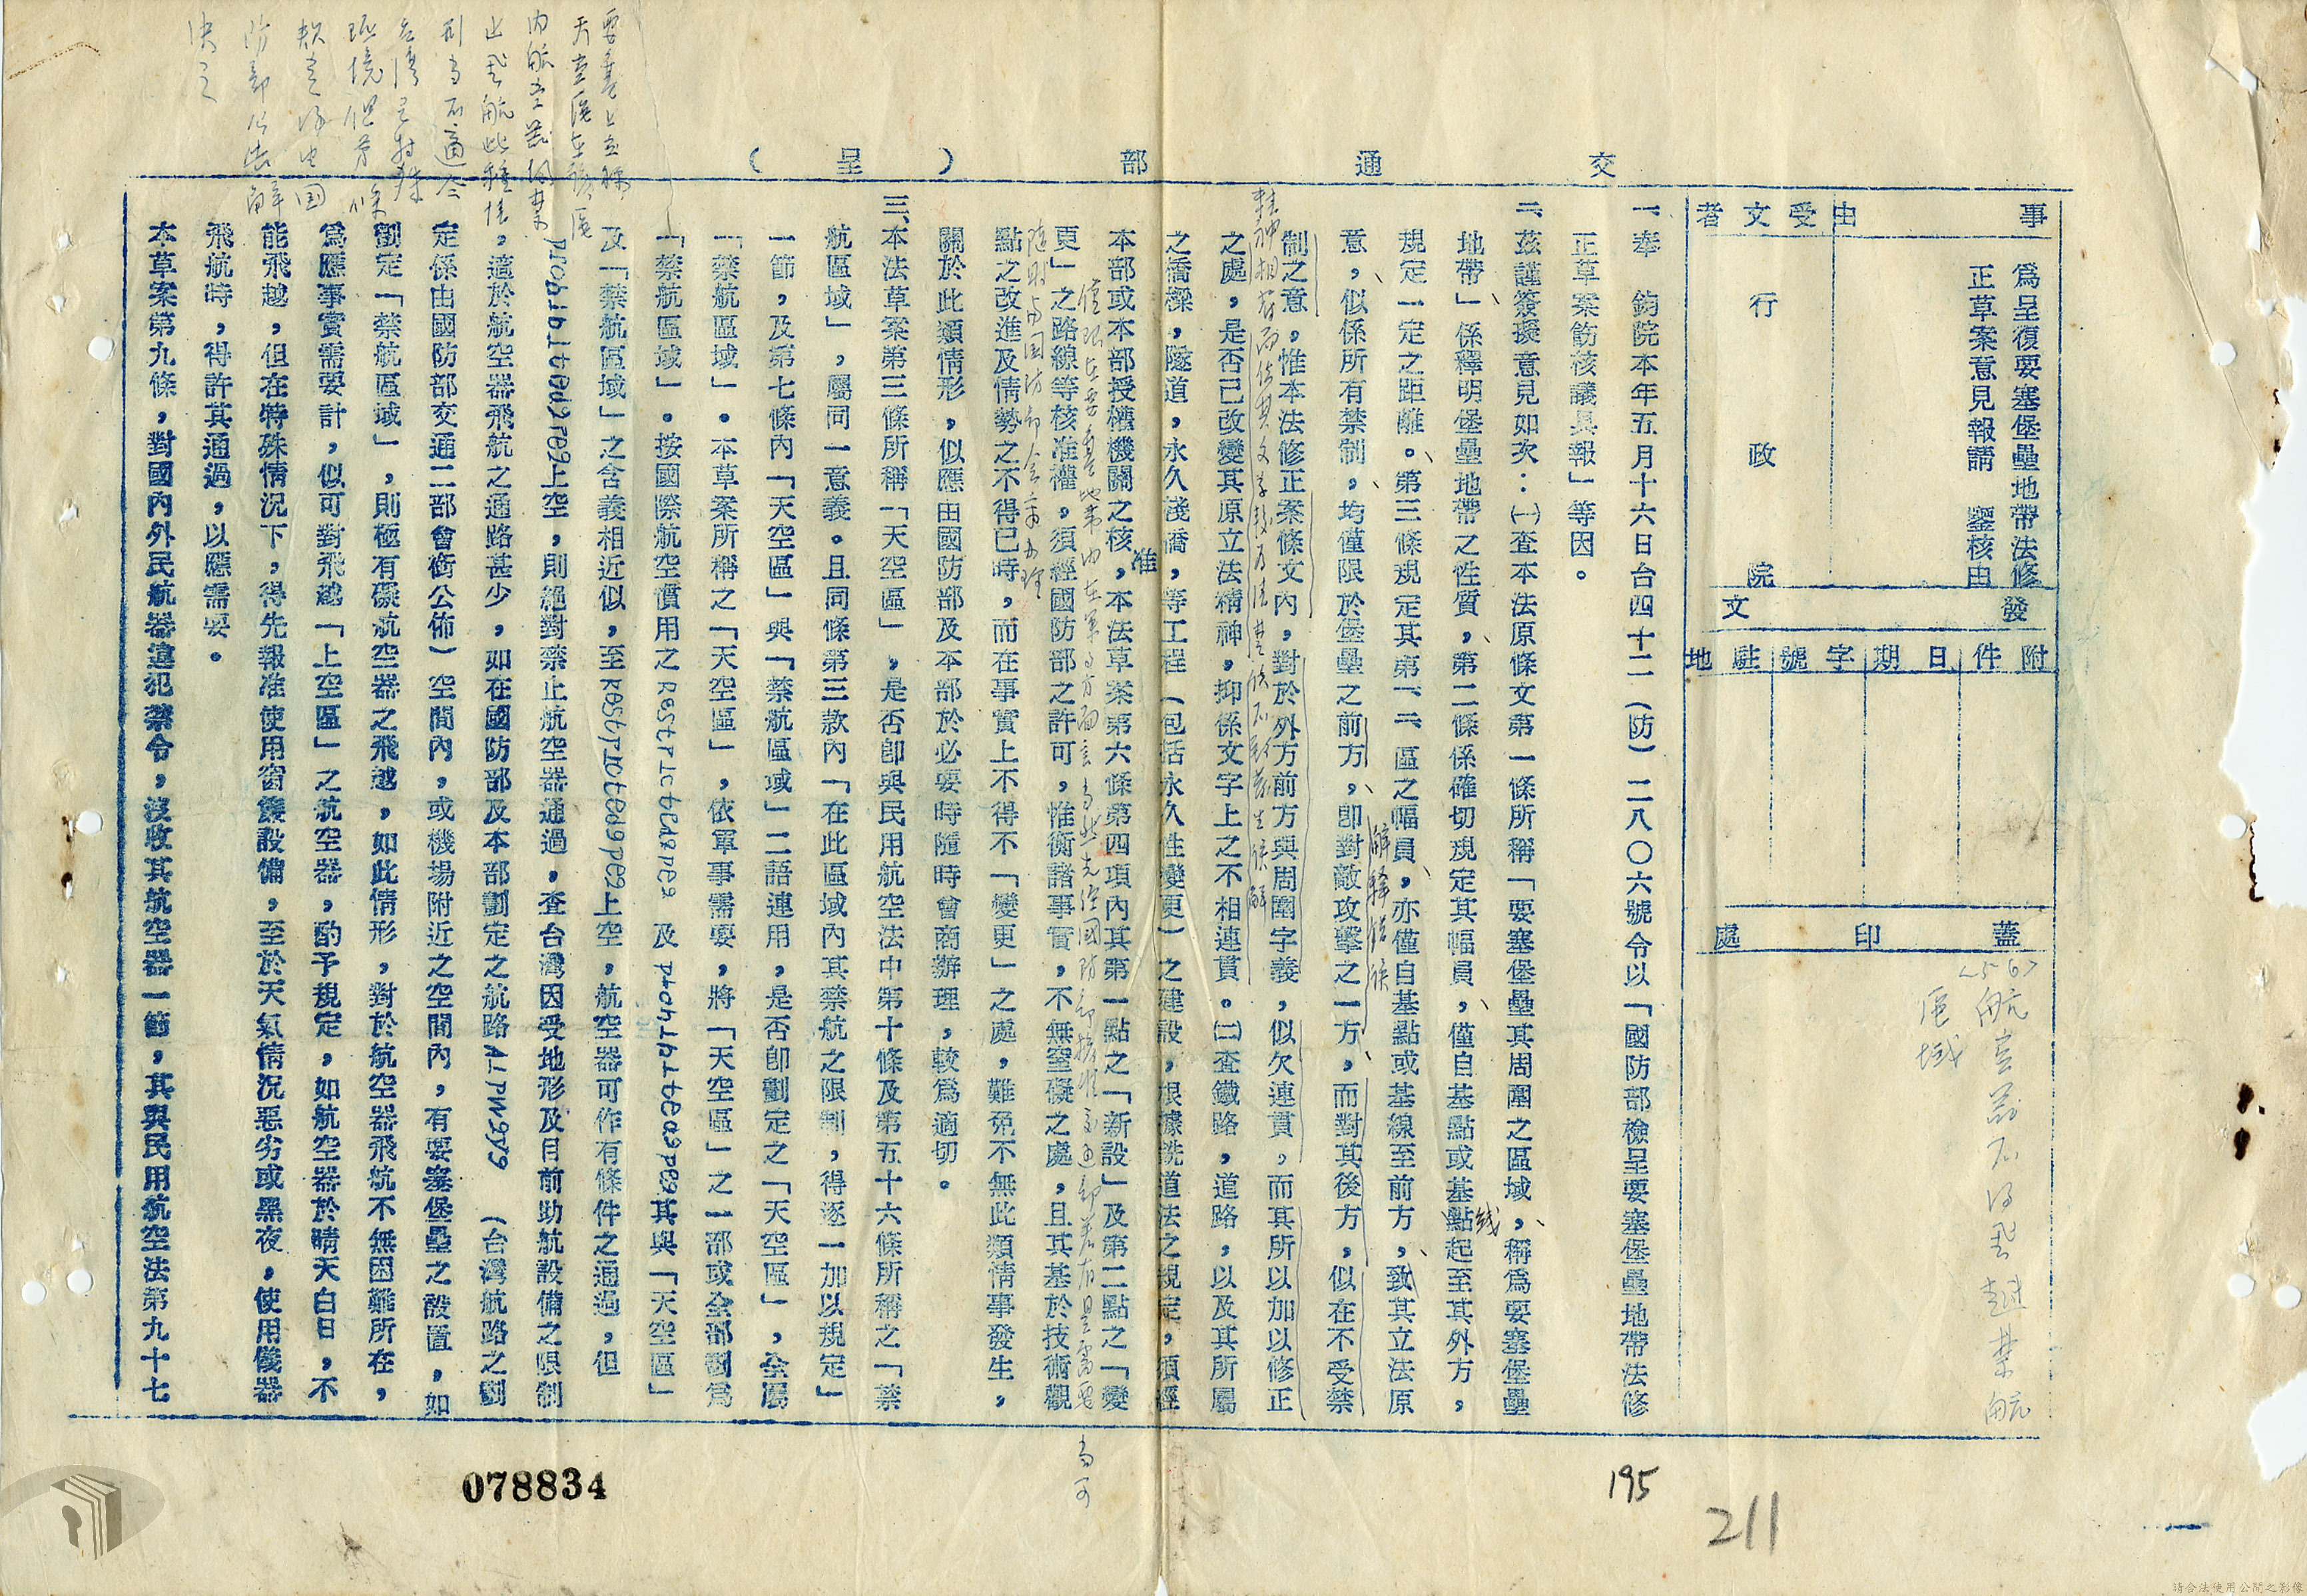 交通部（呈）
事由
為呈復要塞堡壘地帶法修
正草案意見報請　鑒核由
受文者
行政院
發文
附件
日期
字號
駐地
蓋印處
<56>航空器不得飛越禁航
區域
一、奉　鈞院本年五月十六日台四十二（防）二八〇六號令以「國防部檢呈要塞堡壘地帶法修
正草案飭核議具報」等因。
二、茲謹簽擬意見如次：㈠查本法原條文第一條所稱「要塞堡壘其周圍之區域，稱為要塞堡壘
地帶」係釋明堡壘地帶之性質，第二條係確切規定其幅員，僅自基點或基點起至其外方，
線
規定一定之距離。第三條規定其第一、二區之幅員，亦僅自基點或基線至前方，致其立法原
解釋錯誤
意，似係所有禁制，均僅限於堡壘之前方，即對敵攻擊之一方，而對其後方，似在不受禁
制之意，惟本法修正案條文內，對於外方前方與周圍字義，似欠連貫，而其所以加以修正
之處，是否已改變其原立法精神，抑係文字上之不相連貫。㈡查鐵路，道路，以及其所屬
之橋樑，隧道，永久淺橋，等工程（包括永久性變更）之建設，根據鐵道法之規定，須經
本部或本部授權機關之核准，本法草案第六條第四項內其第一點之「新設」及第二點之「變
更」之路線等核准權，須經國防部之許可，惟衡諸事實，不無窒礙之處，且其基於技術觀
點之改進及情勢之不得已時，而在事實上不得不「變更」之處，難免不無此類情事發生，
關於此類情形，似應由國防部及本部於必要時隨時會商辦理，較為適切。
尚可
三、本法草案第三條所稱「天空區」，是否即與民用航空法中第十條及第五十六條所稱之「禁
航區域」，屬同一意義。且同條第三款內「在此區域內其禁航之限制，得逐一加以規定」
一節，及第七條內「天空區」與「禁航區域」二語連用，是否即劃定之「天空區」，全屬
「禁航區域」。本草案所稱之「天空區」，依軍事需要，將「天空區」之一部或全部劃為
「禁航區域」。按國際航空慣用之Restricted area 及 prohibited area其與「天空區」
及「禁航區域」之含義相近似，至Restricted area上空，航空器可作有條件之通過，但
prohibited area上空，則絕對禁止航空器通過，查台灣因受地形及目前助航設備之限制
，適於航空器飛航之通路甚少，如在國防部及本部劃定之航路Airways（台灣航路之劃
定係由國防部交通二部會銜公佈）空間內，或機場附近之空間內，有要塞堡壘之設置，如
劃定「禁航區域」，則極有礙航空器之飛越，如此情形，對於航空器飛航不無困難所在，
為應事實需要計，似可對飛越「上空區」之航空器，酌予規定，如航空器於晴天白日，不
能飛越，但在特殊情況下，得先報准使用窗簾設備，至於天氣情況惡劣或黑夜，使用儀器
飛航時，得許其通過，以應需要。
本草案第九條，對國內外民航器違犯禁令，沒收其航空器一節，其與民用航空法第九十七
要塞上空稱
天空區在該區
內航空器仍禁
止飛航此種性
台灣是特殊
環境但第　條
款意得由國
防部公告解
決之
078834
195
211
請合法使用公開之影像